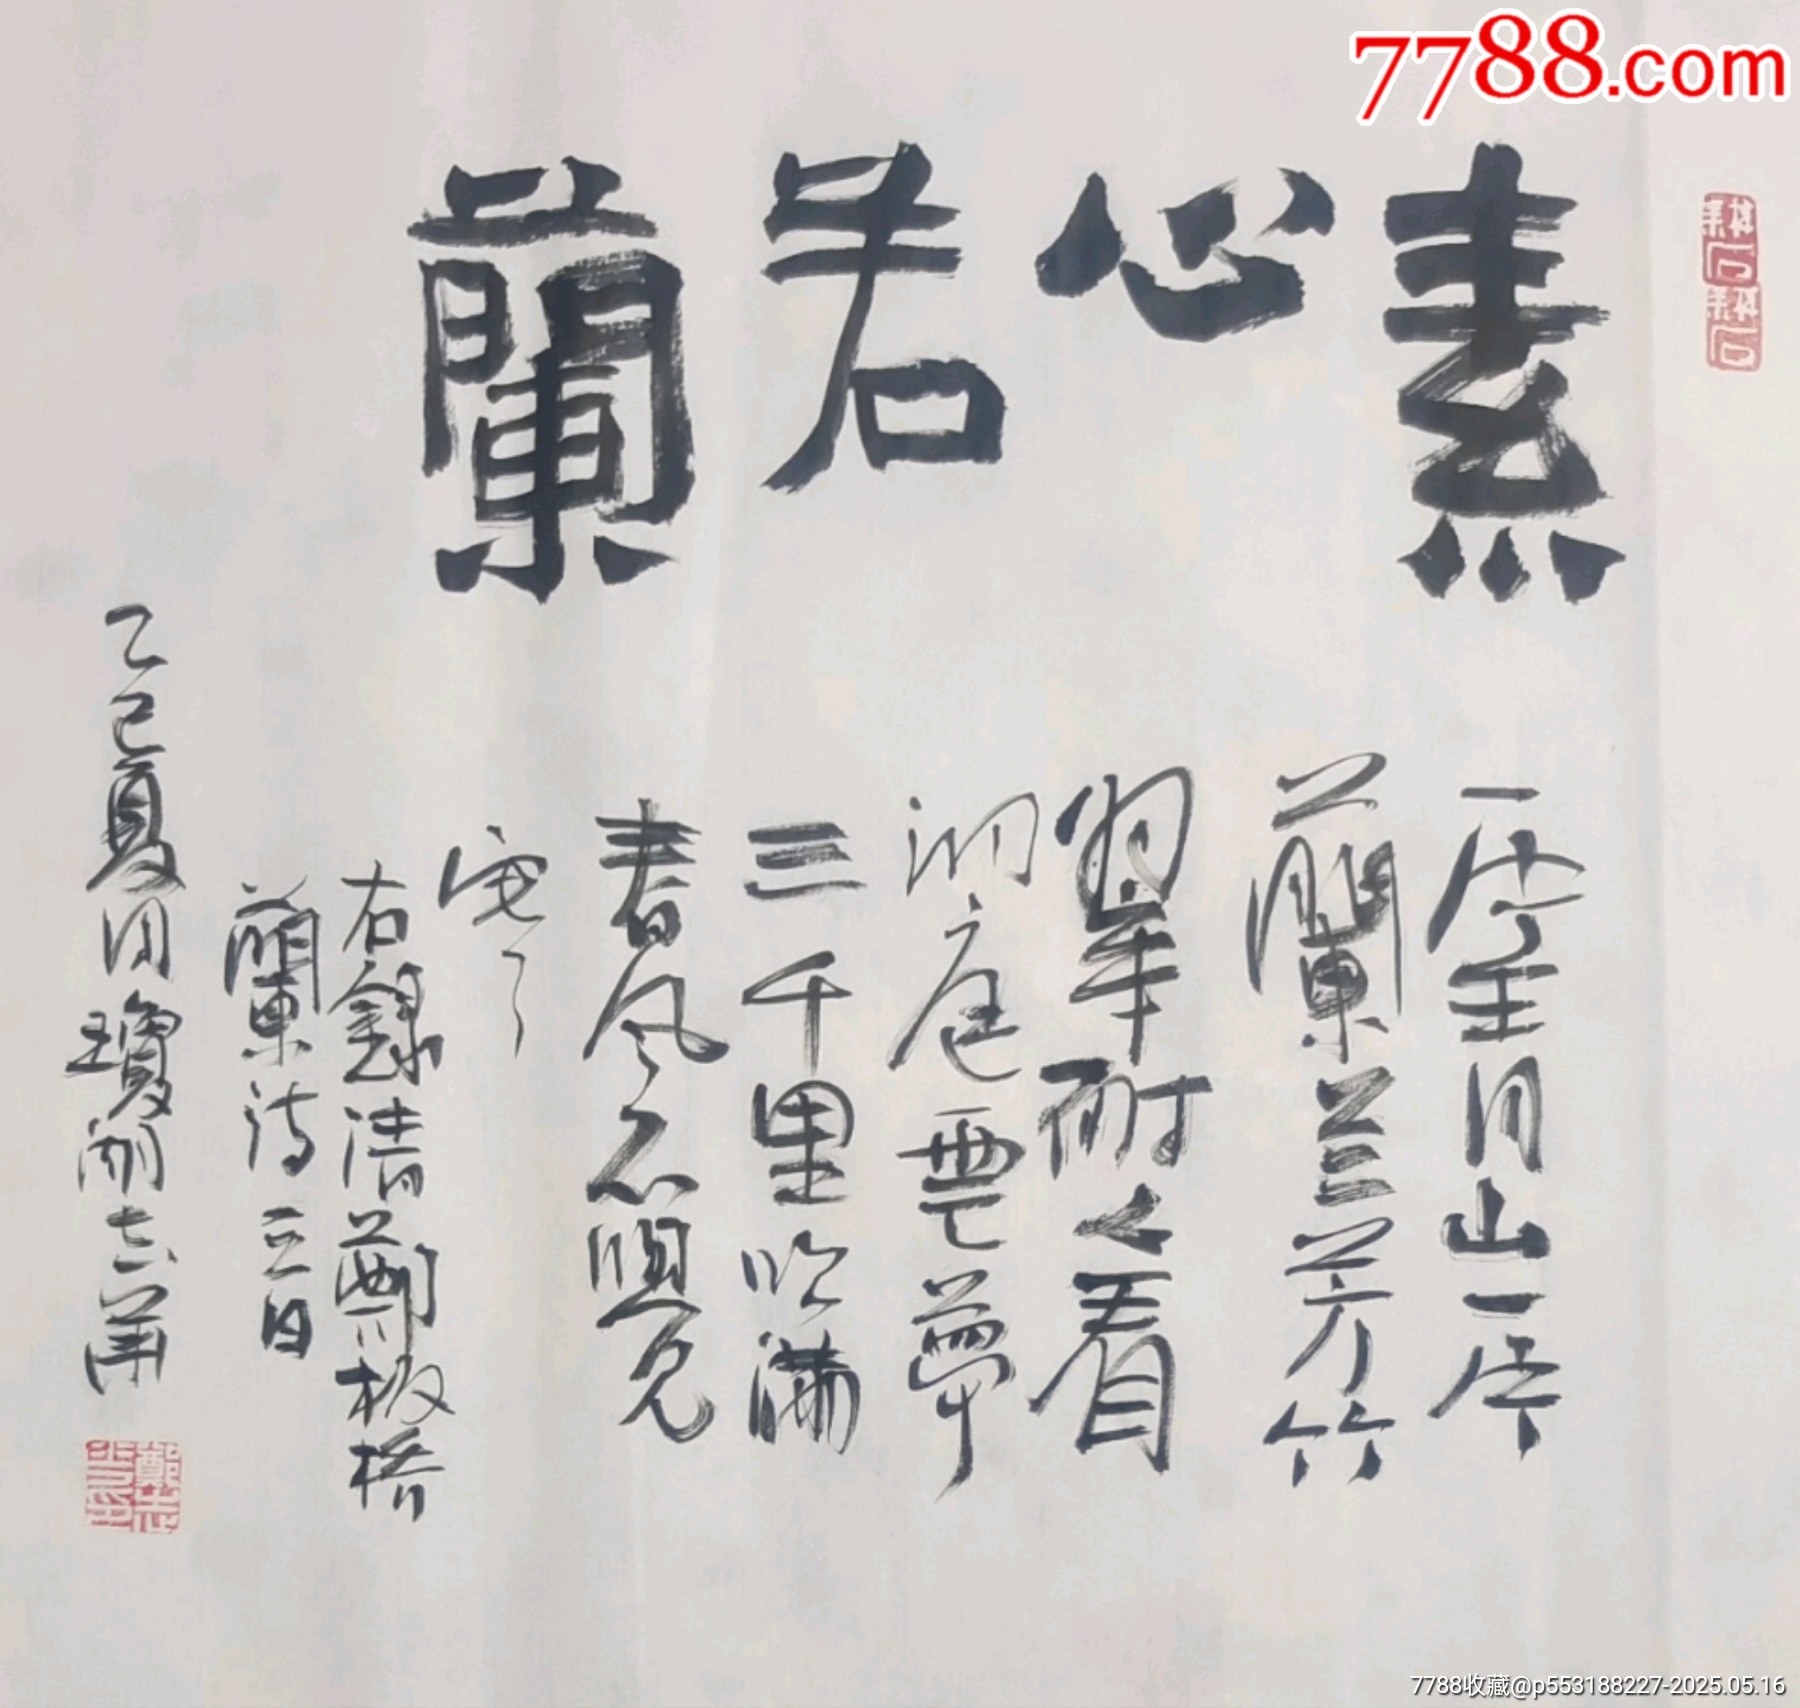 7788.com
素心若蘭
一片青山一片
蘭兰芳竹
翠耐人看
洞庭雲夢
三千里吹滿
春風不覺
寒
右錄清鄭板橋
蘭诗一首
乙巳夏月瓊湖志
7788收藏@p553188227-2025.05.16